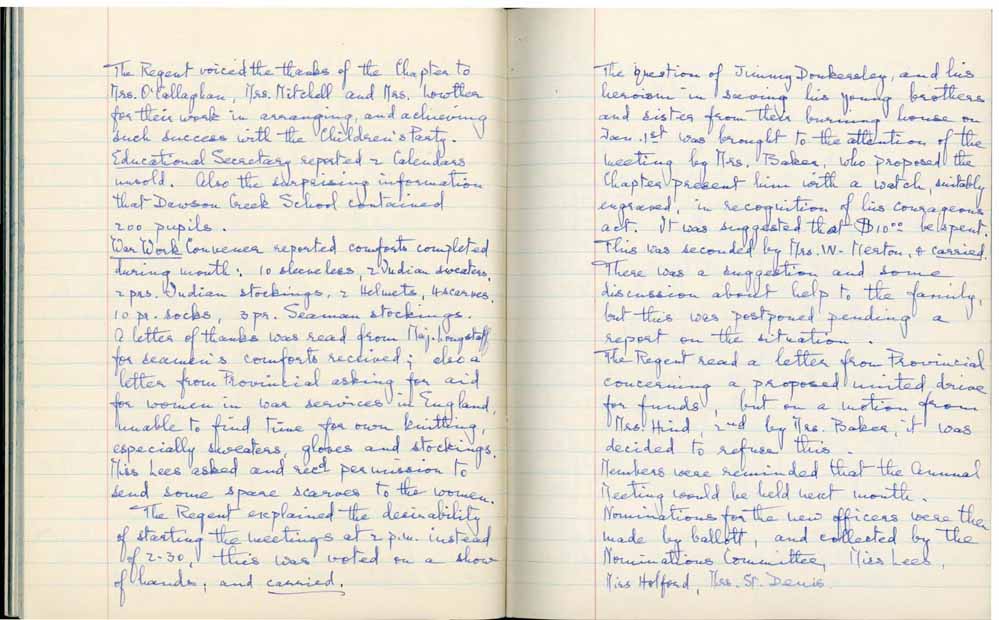 The Regent voiced the thanks of the Chapter to
Mrs. O'Callaghan, Mrs. Mitchell and Mrs. Lowther
for their work in arranging, and achieving
such success with the Children's Party.
Educational Secretary reported 2 Calendars
unsold. Also the surprising information
that Dawson Creek School contained
200 pupils.
War Work Convener reported comforts completed
during month: 10 sleeveless, 2 Indian sweaters,
2 prs. Indian stockings, 2 Helmets, 4 scarves,
10 pr. socks, 3 pr. Seaman stockings.
A letter of thanks was read from Maj. Longstaff
for seamen's comforts received; also a
letter from Provincial asking for aid
for women in war services in England,
unable to find time for own knitting,
especially sweaters, gloves and stockings.
Miss Lees asked and rec'd permission to
send some spare scarves to the women.
The Regent explained the desirability
of starting the meetings at 2 p.m. instead
of 2-30, this was voted on a show
of hands, and carried.
The question of Jimmy Donkersley, and his
heroism in saving his young brothers
and sister from their burning house on
Jan. 1st was brought to the attention of the
meeting by Mrs. Baker, who proposed the
Chapter present him with a watch, suitably
engraved, in recognition of his courageous
act. It was suggested that $10.00 be spent.
This was seconded by Mrs. W. Merton, & carried.
There was a suggestion and some
discussion about help to the family,
but this was postponed pending a
report on the situation.
The Regent read a letter from Provincial
concerning a proposed united drive
for funds, but on a motion from
Mrs. Hind, 2nd by Mrs. Baker, it was
decided to refuse this.
Members were reminded that the Annual
Meeting would be held next month.
Nominations for the new officers were then
made by ballott, and collected by the
Nominations Committee, Miss Lees,
Miss Holford, Mrs. St. Denis